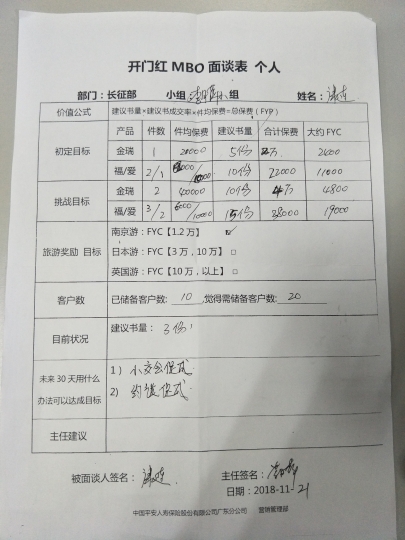 开门红 MBO 面谈表 个人
部门：长征部 小组 小组 姓名：
价值公式 建议书量×建议书成交率×件均保费=总保费（FYP）
产品 件数 件均保费 建议书量 合计保费 大约 FYC
初定目标 金瑞 1 20000 5份 2万 2400
福/爱 2/1 /10000 10份 22000 11000
挑战目标 金瑞 2 40000 10份 4万 4800
福/爱 3/2 6000/10000 15份 38000 19000
旅游奖励 目标 南京游：FYC【1.2 万】 ☑
日本游：FYC【3 万，10 万】 □
英国游：FYC【10 万，以上】 □
客户数 已储备客户数： 10 ,觉得需储备客户数： 20
目前状况 建议书量： 3份
未来 30 天用什么办法可以达成目标 1）小交会促成
2）约谈促成
主任建议
被面谈人签名： 主任签名：
日期：2018-11-21
中国平安人寿保险股份有限公司广东分公司 营销管理部